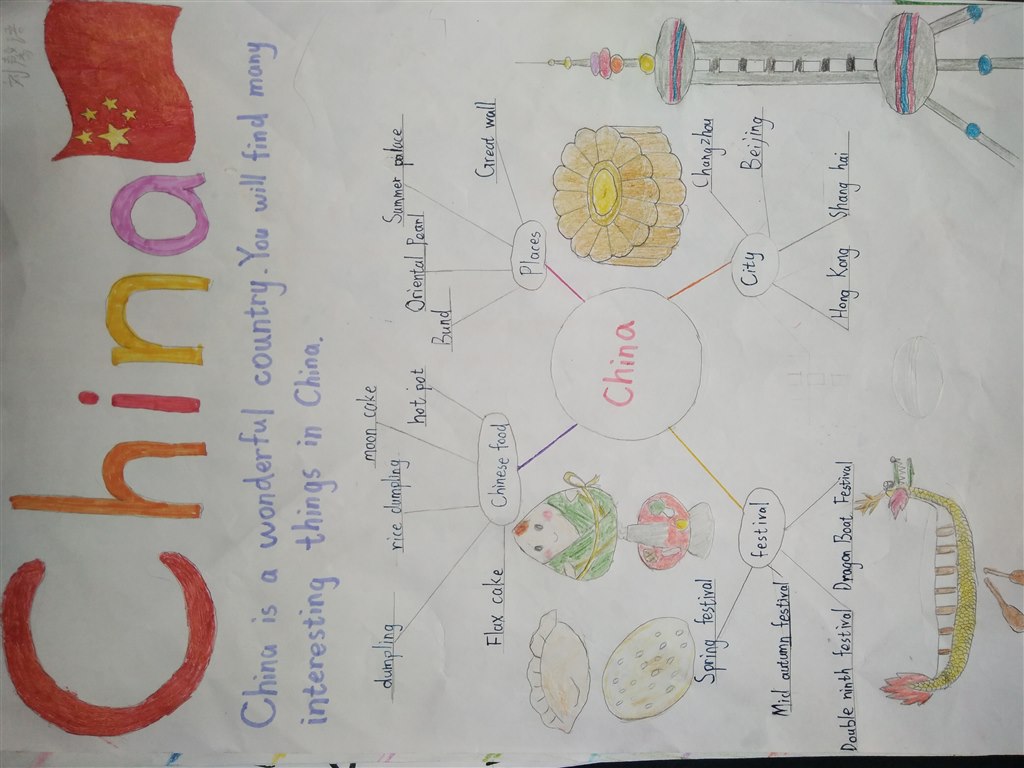 China
China is a wonderful country. You will find many
interesting things in China.
dumpling
rice dumpling
moon cake
hot pot
Flax cake
Chinese food
Bund
Oriental Pearl
Summer palace
Great wall
Places
China
festival
Spring festival
Mid autumn festival
Double ninth festival
Dragon Boat Festival
City
Changzhou
Beijing
Shang hai
Hong Kong